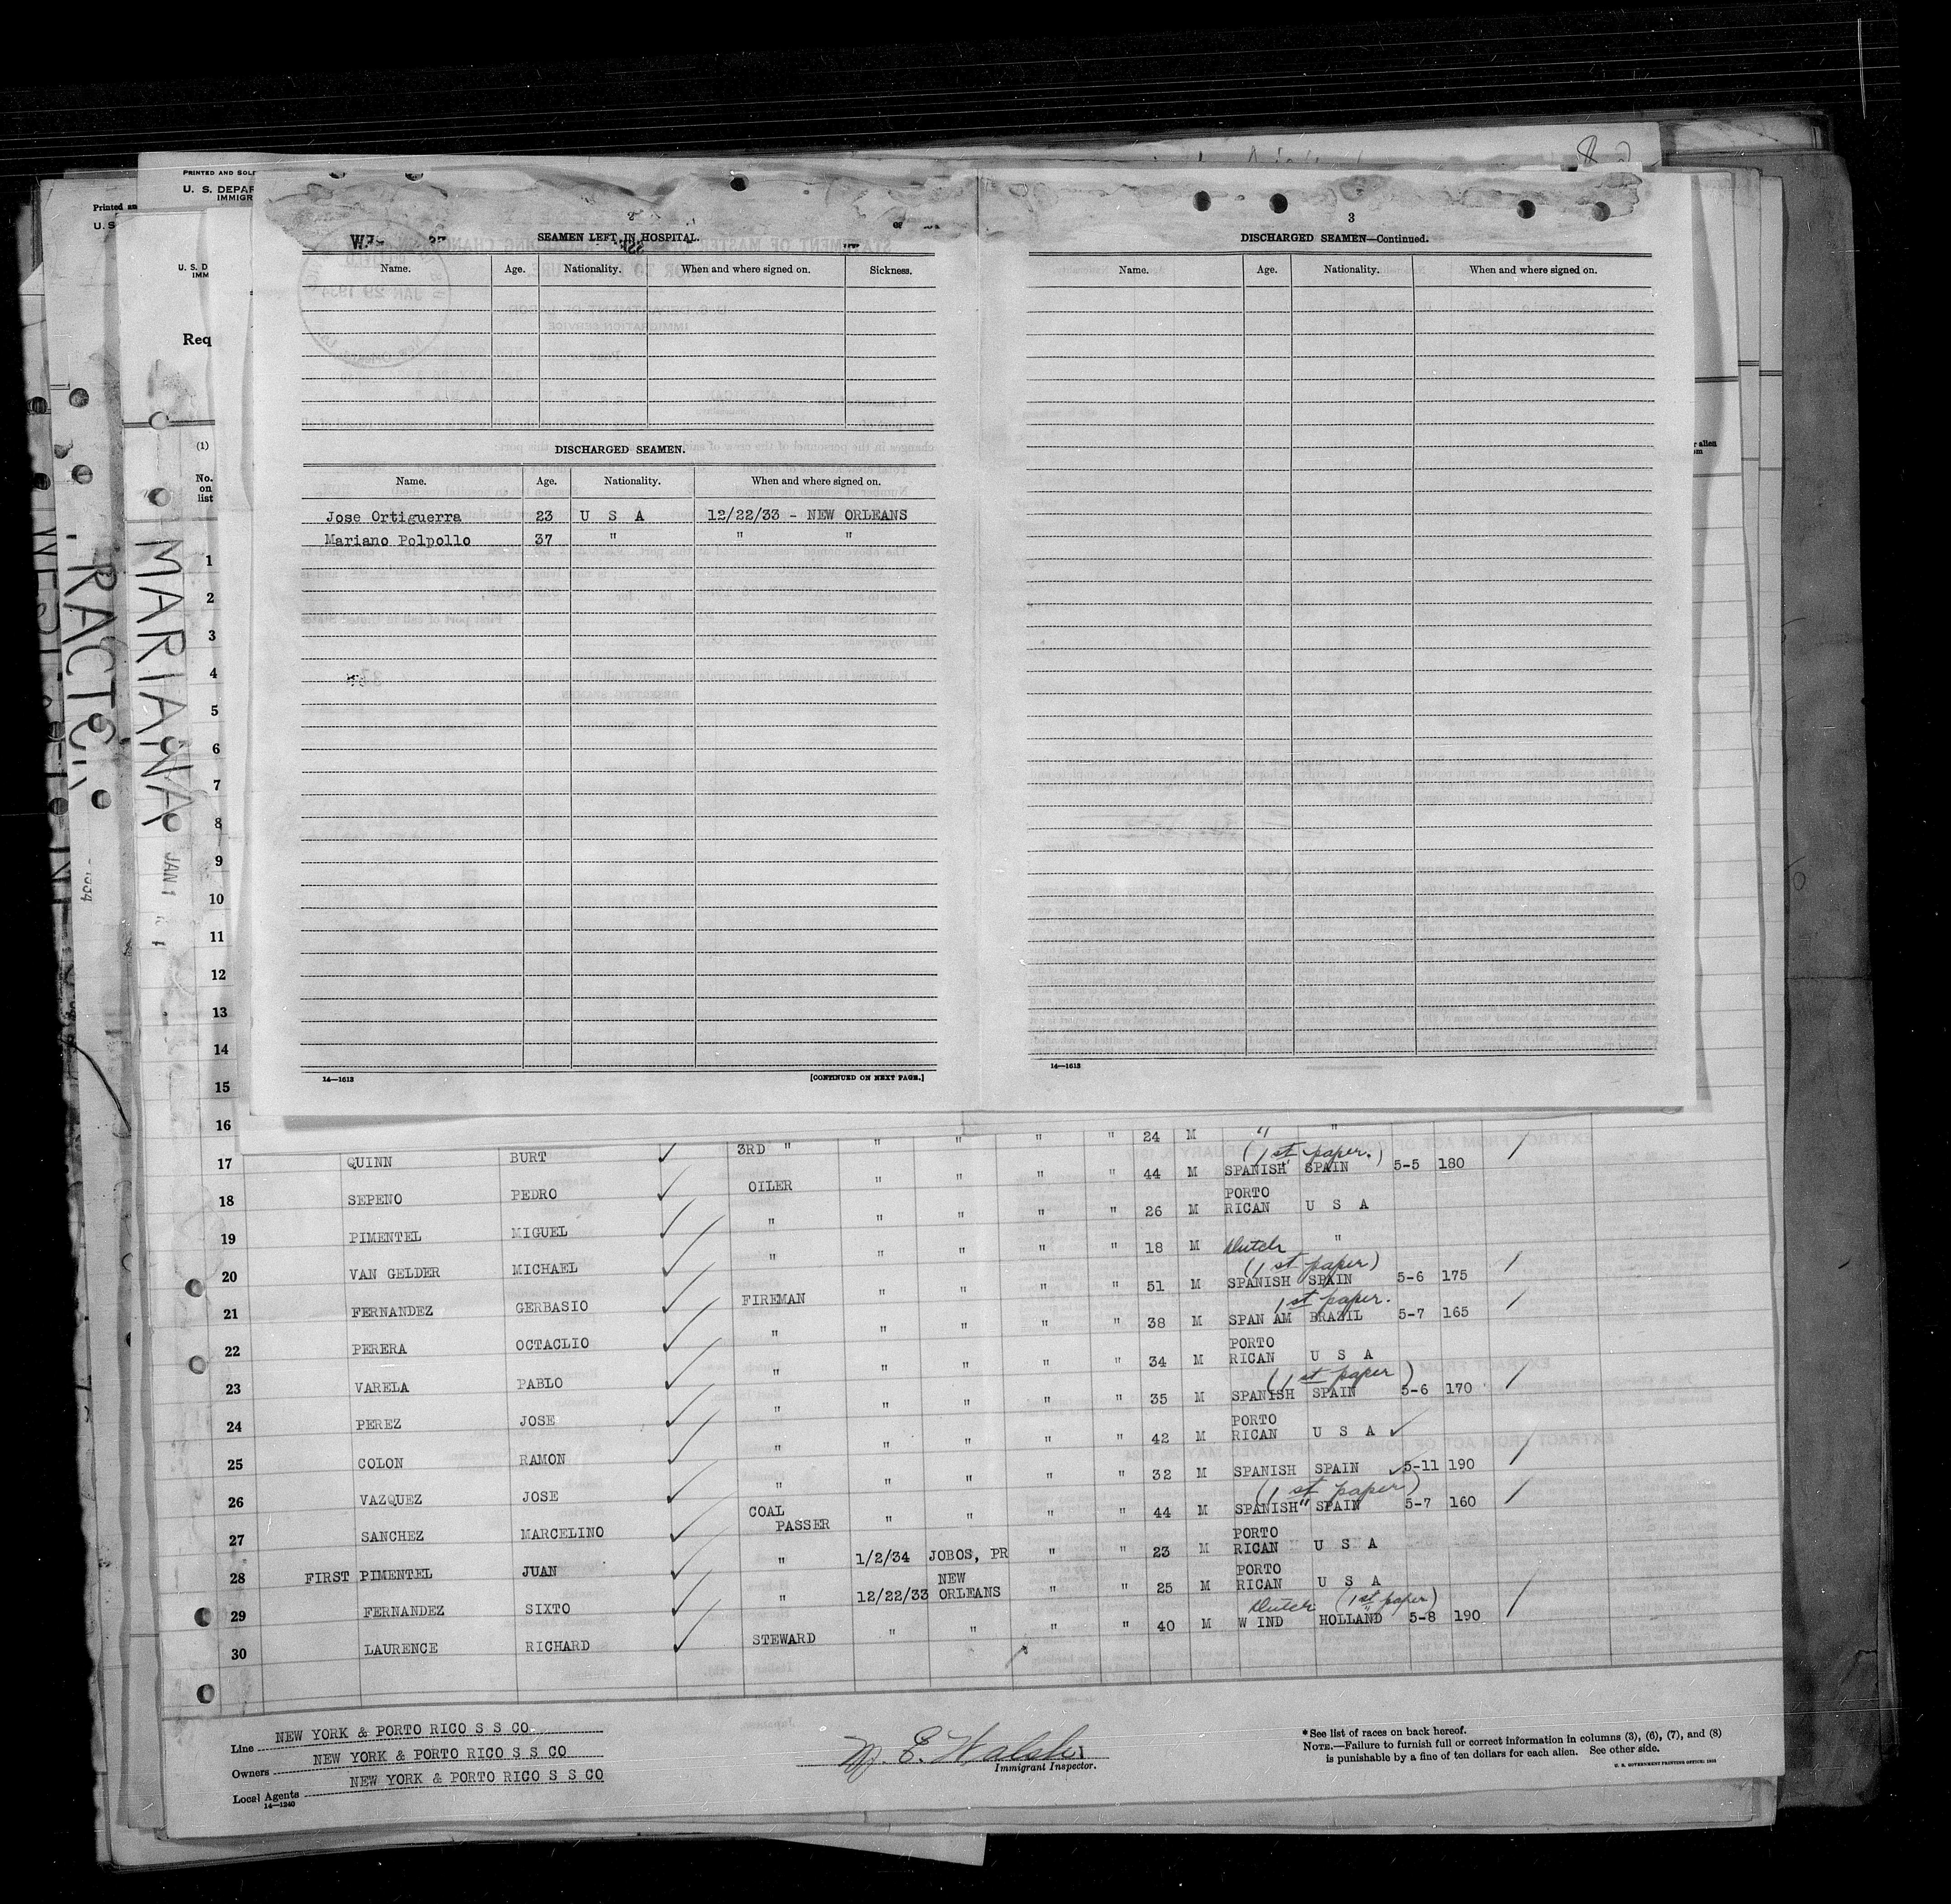 PRINTED AND SOLD
U. S. DEPAR
IMMIGR
Printed an
U. S
U. S. D
IMM
Req
(1)
No.
on
list
MARIANA
JAN 1
2
SEAMEN LEFT IN HOSPITAL.
Name. Age. Nationality. When and where signed on. Sickness.
DISCHARGED SEAMEN.
Name. Age. Nationality. When and where signed on.
Jose Ortiguerra 23 U S A 12/22/33 - NEW ORLEANS
Mariano Polpollo 37 " " "
14—1613 [CONTINUED ON NEXT PAGE.]
3
DISCHARGED SEAMEN—Continued.
Name. Age. Nationality. When and where signed on.
14—1613
r alien
1
2
3
4
5
6
7
8
9
10
11
12
13
14
15
16
17 QUINN BURT 3RD " " " " " 24 M " "
18 SEPENO PEDRO OILER " " " " 44 M SPANISH SPAIN (1st paper.) 5-5 180
19 PIMENTEL MIGUEL " " " " " 26 M PORTO RICAN U S A
20 VAN GELDER MICHAEL " " " " " 18 M Dutch "
21 FERNANDEZ GERBASIO FIREMAN " " " " 51 M SPANISH SPAIN (1st paper) 5-6 175
22 PERERA OCTACLIO " " " " " 38 M SPAN AM BRAZIL 1st paper. 5-7 165
23 VARELA PABLO " " " " " 34 M PORTO RICAN U S A
24 PEREZ JOSE " " " " " 35 M SPANISH SPAIN (1st paper) 5-6 170
25 COLON RAMON " " " " " 42 M PORTO RICAN U S A
26 VAZQUEZ JOSE " " " " " 32 M SPANISH SPAIN 5-11 190
27 SANCHEZ MARCELINO COAL PASSER " " " " 44 M SPANISH SPAIN (1st paper) 5-7 160
28 FIRST PIMENTEL JUAN " 1/2/34 JOBOS, PR " " 23 M PORTO RICAN U S A
29 FERNANDEZ SIXTO " 12/22/33 NEW ORLEANS " " 25 M PORTO RICAN U S A
30 LAURENCE RICHARD STEWARD " " " " 40 M Dutch W IND HOLLAND (1st paper) 5-8 190
Line NEW YORK & PORTO RICO S S CO
Owners NEW YORK & PORTO RICO S S CO
Local Agents NEW YORK & PORTO RICO S S CO
14—1240
Immigrant Inspector.
*See list of races on back hereof.
NOTE.—Failure to furnish full or correct information in columns (3), (6), (7), and (8)
is punishable by a fine of ten dollars for each alien. See other side.